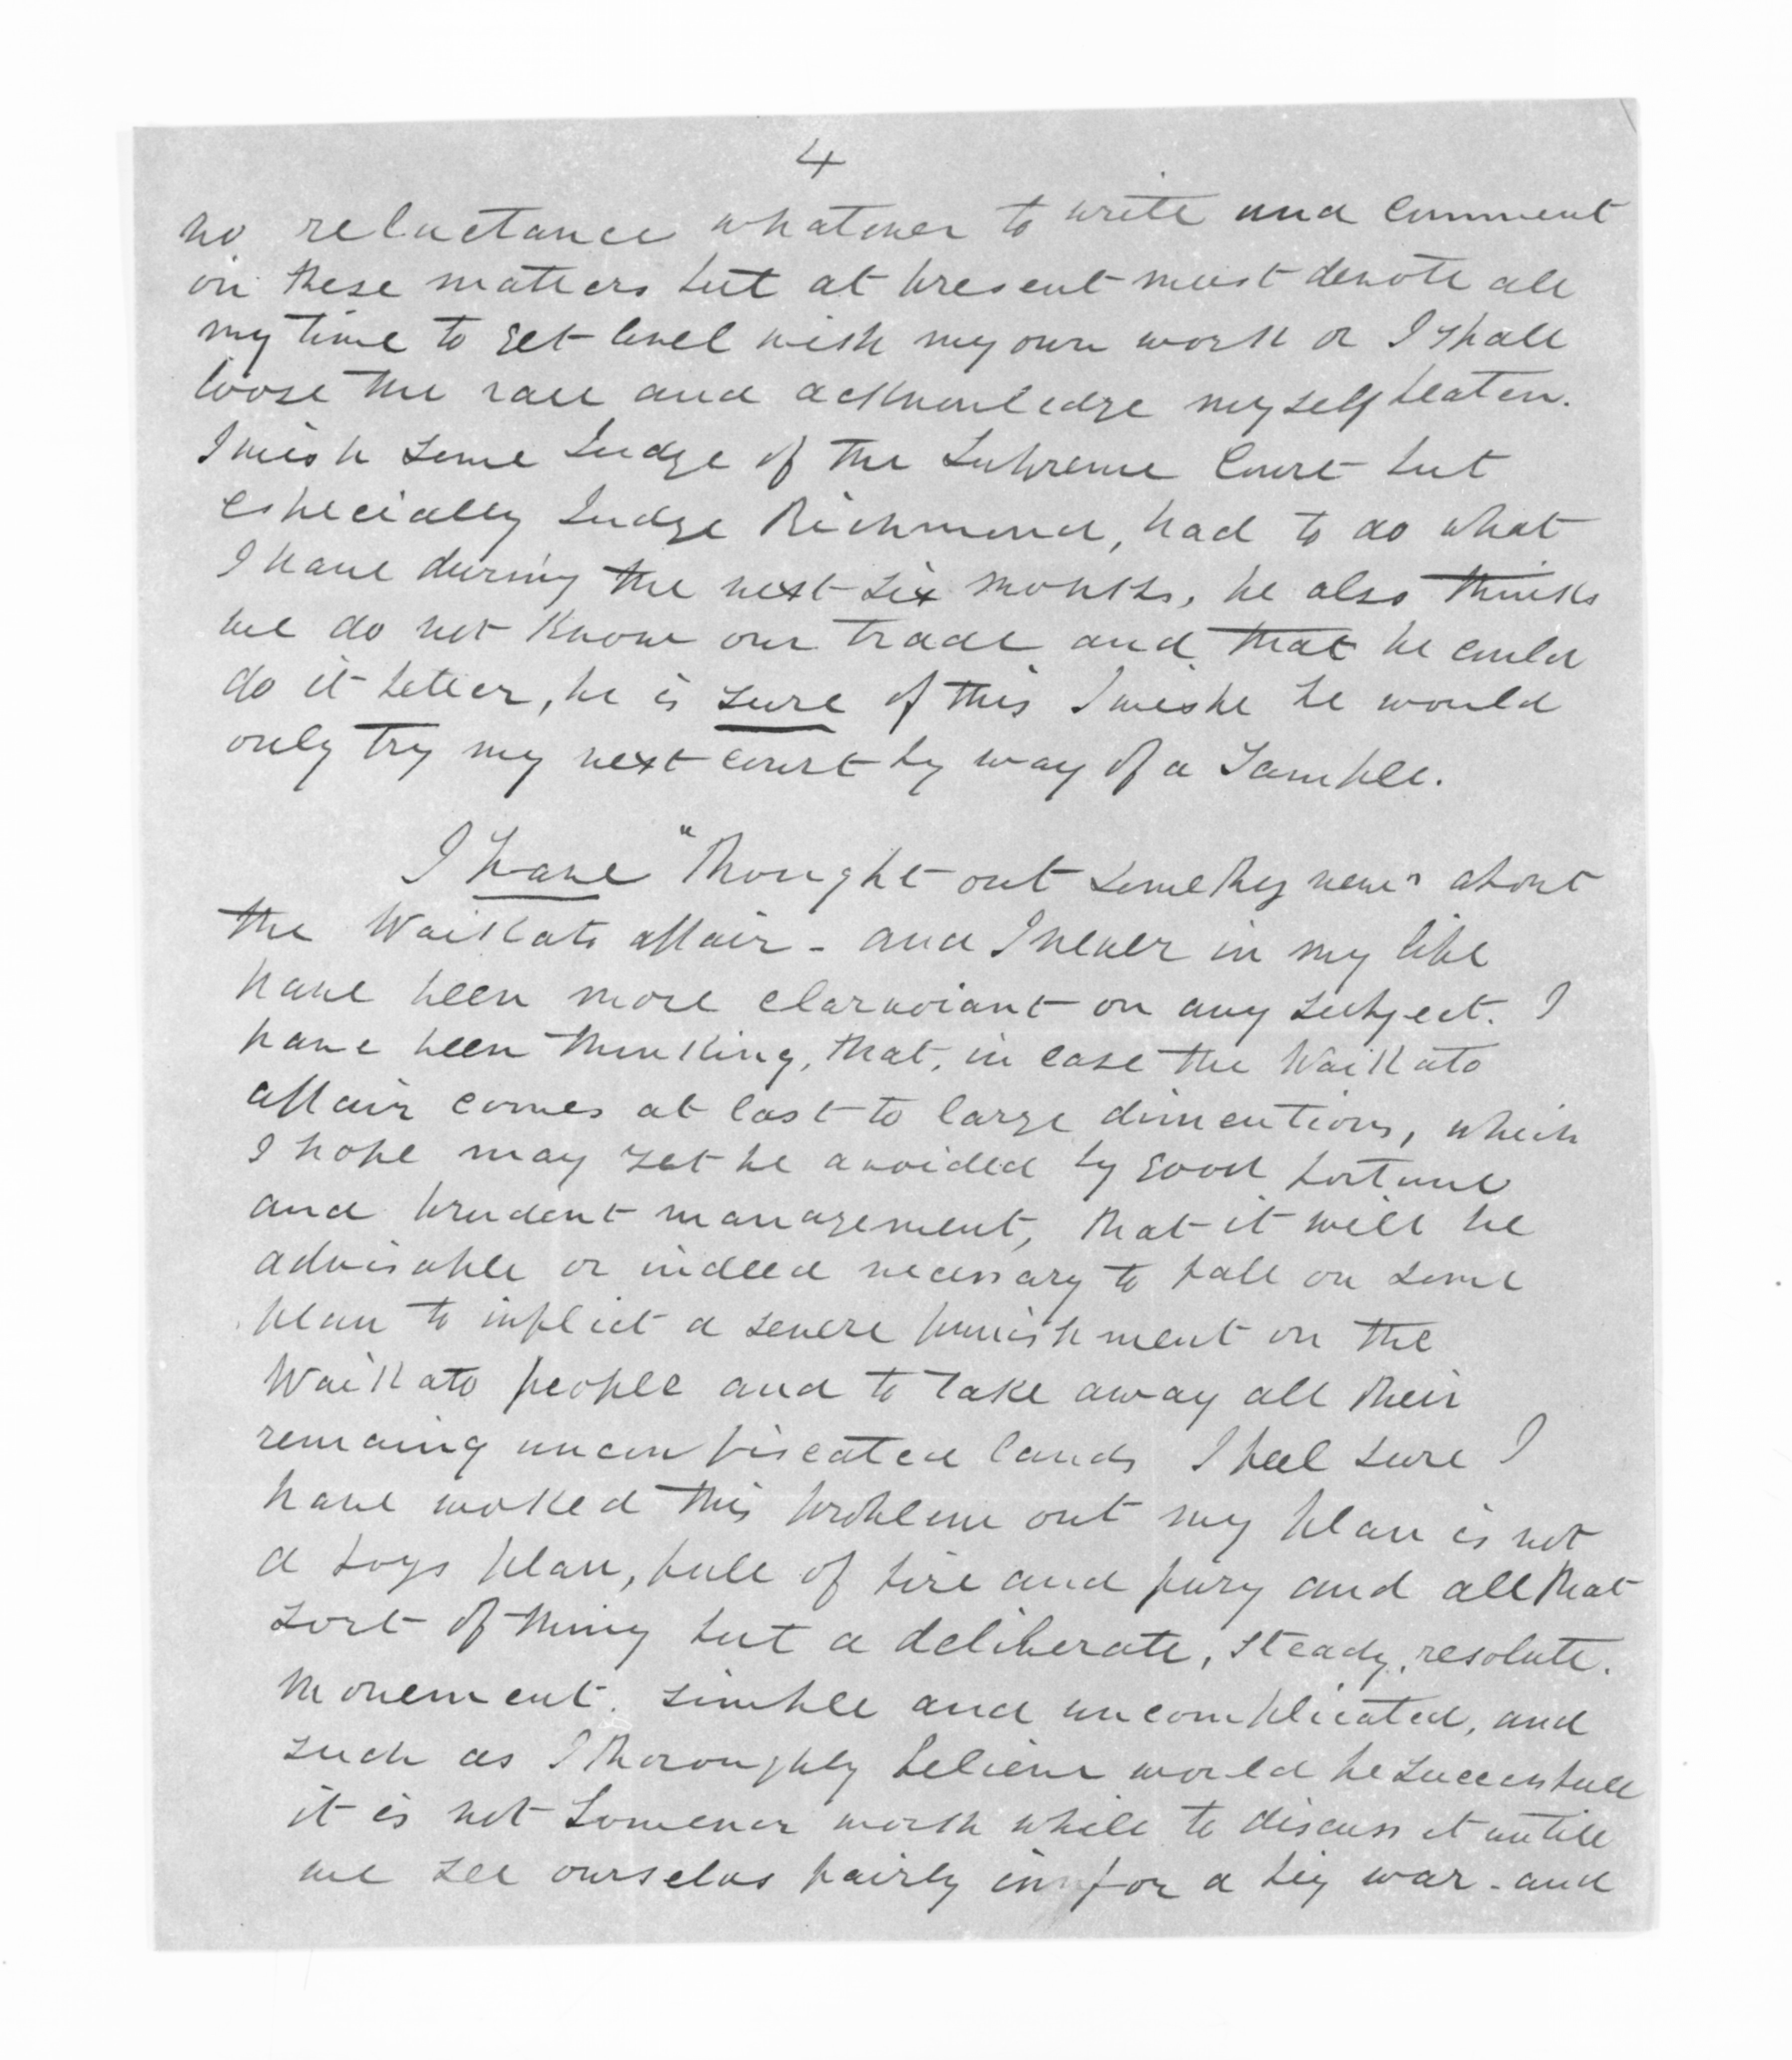 4
no reluctance whatever to write and comment
on these matters but at present must devote all
my time to get level with my own work or I shall
loose the race and acknowledge myself beaten.
I wish some Judge of the Supreme Court but
especially Judge Richmond, had to do what
I have during the next six months, he also thinks
we do not know our trade and that he could
do it better, he is sure of this I wishe he would
only try my next court by way of a sample.
I have "thought out somethg new" about
the Waikato affair - and I never in my life
have been more claravoiant on any subject. I
have been thinking, that, in case the Waikato
affair comes at last to large dimentions, which
I hope may yet be avoided by good fortune
and prudent management, that it will be
advisable or indeed necessary to fall on some
plan to inflict a severe punishment on the
Waikato people and to take away all their
remaing unconfiscated lands I feel sure I
have woked this problem out my plan is not
a boys plan, full of fire and fury and all that
sort of thing but a deliberate, steady, resolute.
movement. simple and uncomplicated, and
such as I thoroughly believe would be successfull
it is not however worth while to discuss it untill
we see ourselvs fairly in for a big war - and